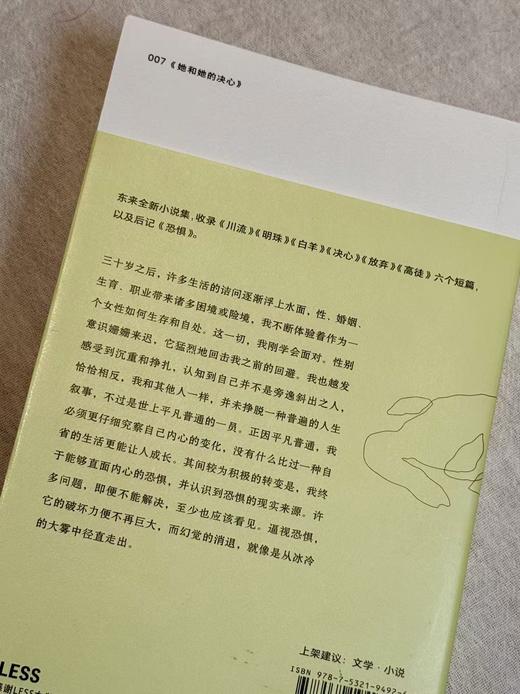 007《她和她的决心》
东来全新小说集，收录《川流》《明珠》《白羊》《决心》《放弃》《高徒》六个短篇，
以及后记《恐惧》。
三十岁之后，许多生活的诘问逐渐浮上水面，性、婚姻、
生育、职业带来诸多困境或险境，我不断体验着作为一
个女性如何生存和自处。这一切，我刚学会面对。性别
意识姗姗来迟，它猛烈地回击我之前的回避。我也越发
感受到沉重和挣扎，认知到自己并不是旁逸斜出之人，
恰恰相反，我和其他人一样，并未挣脱一种普遍的人生
叙事，不过是世上平凡普通的一员。正因平凡普通，我
必须更仔细究察自己内心的变化，没有什么比过一种自
省的生活更能让人成长。其间较为积极的转变是，我终
于能够直面内心的恐惧，并认识到恐惧的现实来源。许
多问题，即便不能解决，至少也应该看见。逼视恐惧，
它的破坏力便不再巨大，而幻觉的消退，就像是从冰冷
的大雾中径直走出。
上架建议：文学·小说
ISBN 978-7-5321-9497-
LESS
感谢LESS